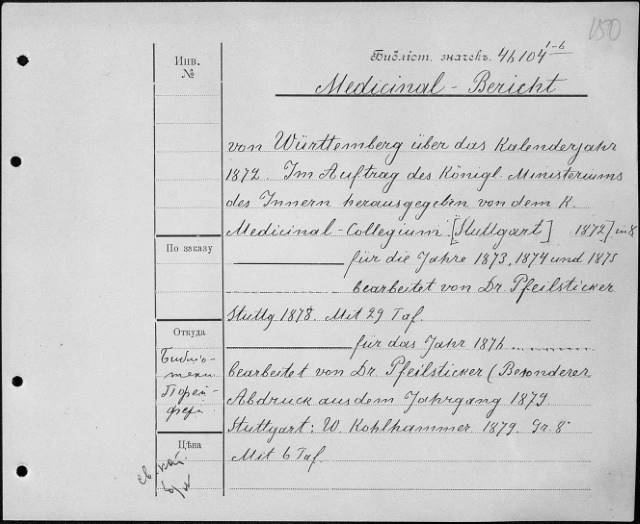 150
Библіот. значекъ. 4h104 1-6
Medicinal-Bericht
Инв.
№
von Württemberg über das Kalenderjahr
1872. Im Auftrag des Königl. Ministeriums
des Innern herausgegeben von dem K.
Medicinal-Collegium. [Stuttgart] 1872] in 8
По заказу
für die Jahre 1873, 1874 und 1875
bearbeitet von Dr. Pfeilsticker
Stuttg 1878. Mit 29 Taf.
Откуда
für das Jahr 1876
Библіо-
теки
bearbeitet von Dr. Pfeilsticker (Besonderer
Abdruck aus dem Jahrgang 1879.
Stuttgart: W. Kohlhammer 1879. Gr. 8°
Цѣна
Mit 6 Taf.